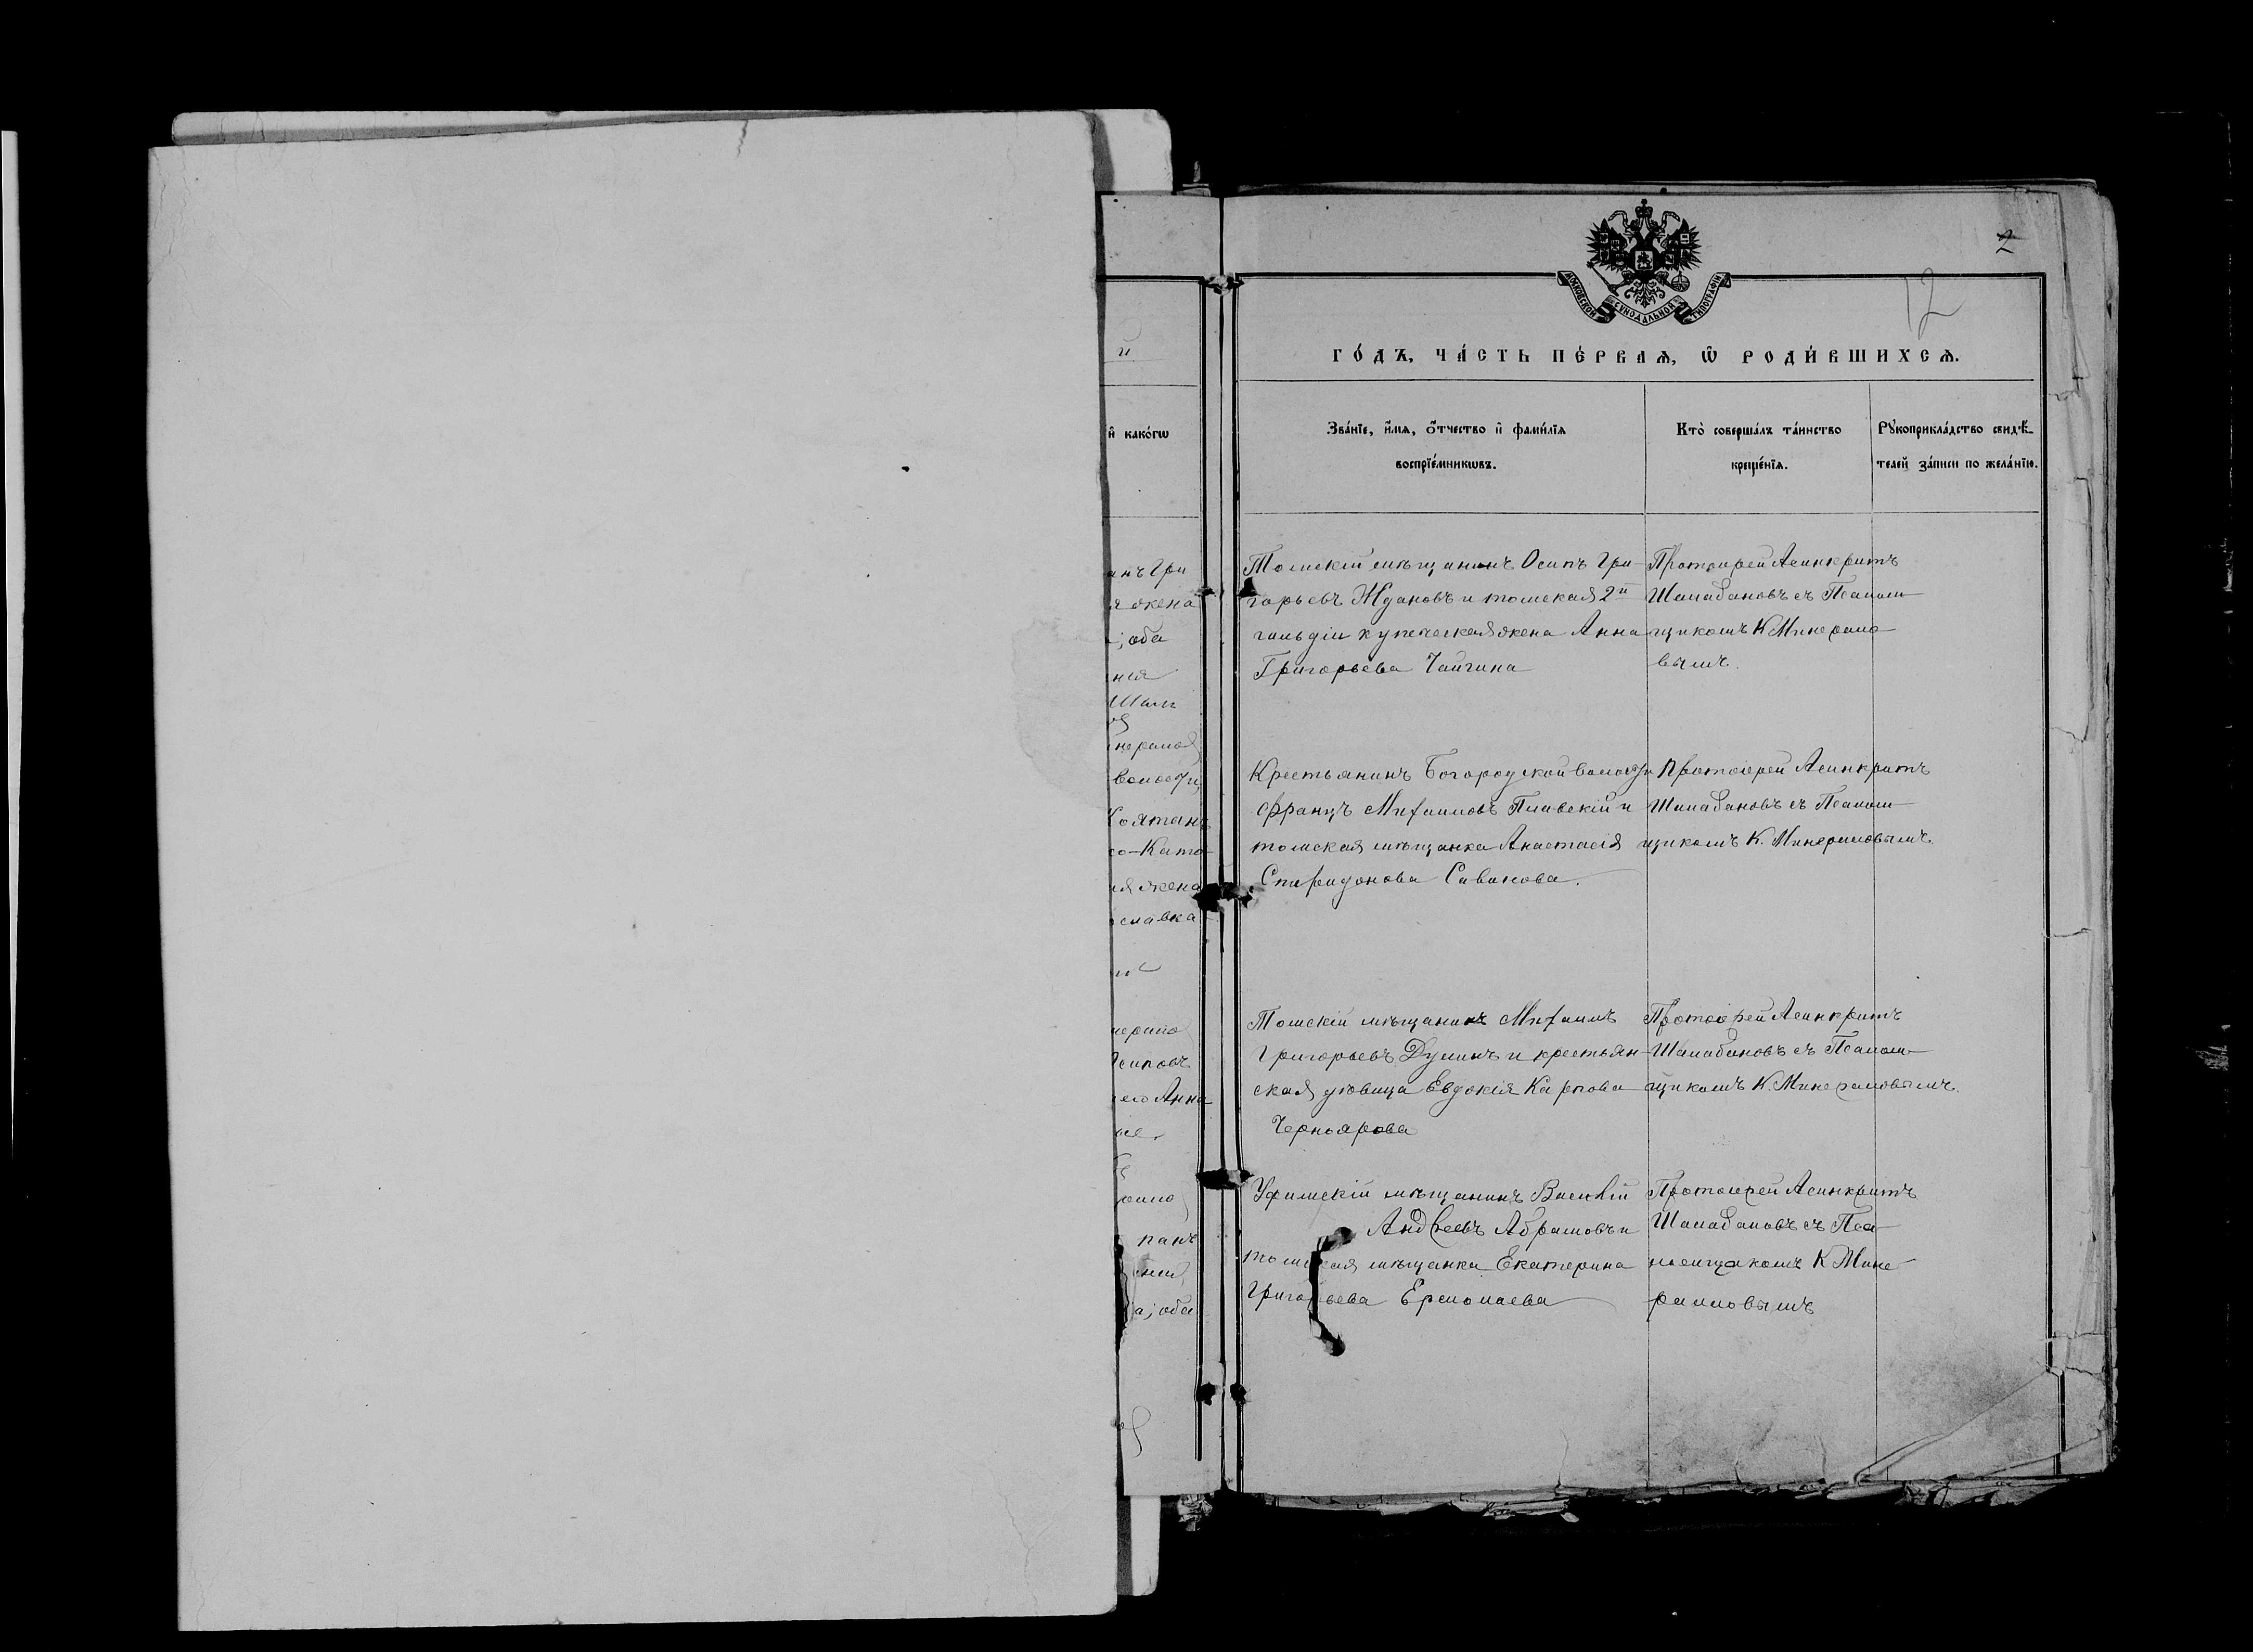 2
12
МОСКОВСКОЙ СѴНОДАЛЬНОЙ ТИПОГРАФІИ
й
ГО́ДЪ, ЧА́СТЬ ПЕ́РВАѦ, Ѡ҆ РОДИ́ВШИХСѦ.
и҆ како́гѡ
Зва́нїе, и҆́мѧ, ѻ҆́тчество и҆ фами́лїѧ
воспрїе́мникѡвъ.
Кто̀ соверша́лъ та́инство
креще́нїѧ.
Рꙋкоприкла́дство свидѣ́-
телей за́писи по жела́нїю.
анъ Гри
я жена
; оба
нерамо
волости,
со-Като-
ия жена
славка
нерамо
его Анна
а; оба
Томскій мѣщанинъ Осипъ Гри-
горьевъ Ждановъ и томская 2й
гильдіи купеческая жена Анна
Григорьева Чайгина
Протоіерей Асинкритъ
Шалабановъ съ Псалом-
щикомъ К Минерало-
вымъ.
Крестьянинъ Богородской волости
Францъ Михаиловъ Плавскій и
томская мѣщанка Анастасія
Спиридонова Саванова.
Протоіерей Асинкритъ
Шалабановъ съ Псалом-
щикомъ К. Минераловымъ.
Томскій мѣщанинъ Михаилъ
Григорьевъ Дулинъ и крестьян-
ская дѣвица Евдокія Карпова
Черноярова
Протоіерей Асинкритъ
Шалабановъ съ Псалом-
щикомъ К. Минераловымъ.
Уфимскій мѣщанинъ Василій
Андреевъ Абрамовъ и
томская мѣщанка Екатерина
Григорьева Ермолаева
Протоіерей Асинкритъ
Шалабановъ съ Пса-
ломщикомъ К Мине-
раловымъ